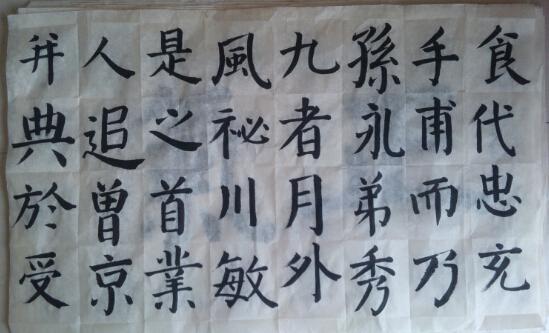 食代忠充
手甫而乃
孫永弟秀
九者月外
風祕川敏
是之首業
人追曾京
并典於受